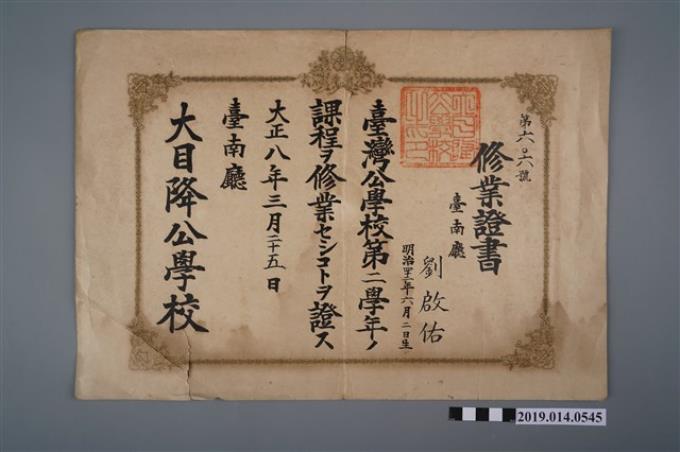 第六〇六號
修業證書
臺南廳
劉啟佑
明治四十二年六月二日生
臺灣公學校第二學年ノ
課程ヲ修業セシコトヲ證ス
大正八年三月二十五日
臺南廳
大目降公學校
2019.014.0545